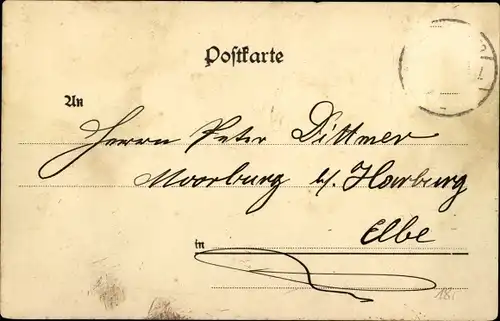 Postkarte
An
Herrn Peter Dittmer
Moorburg b/. Harburg
Elbe
in